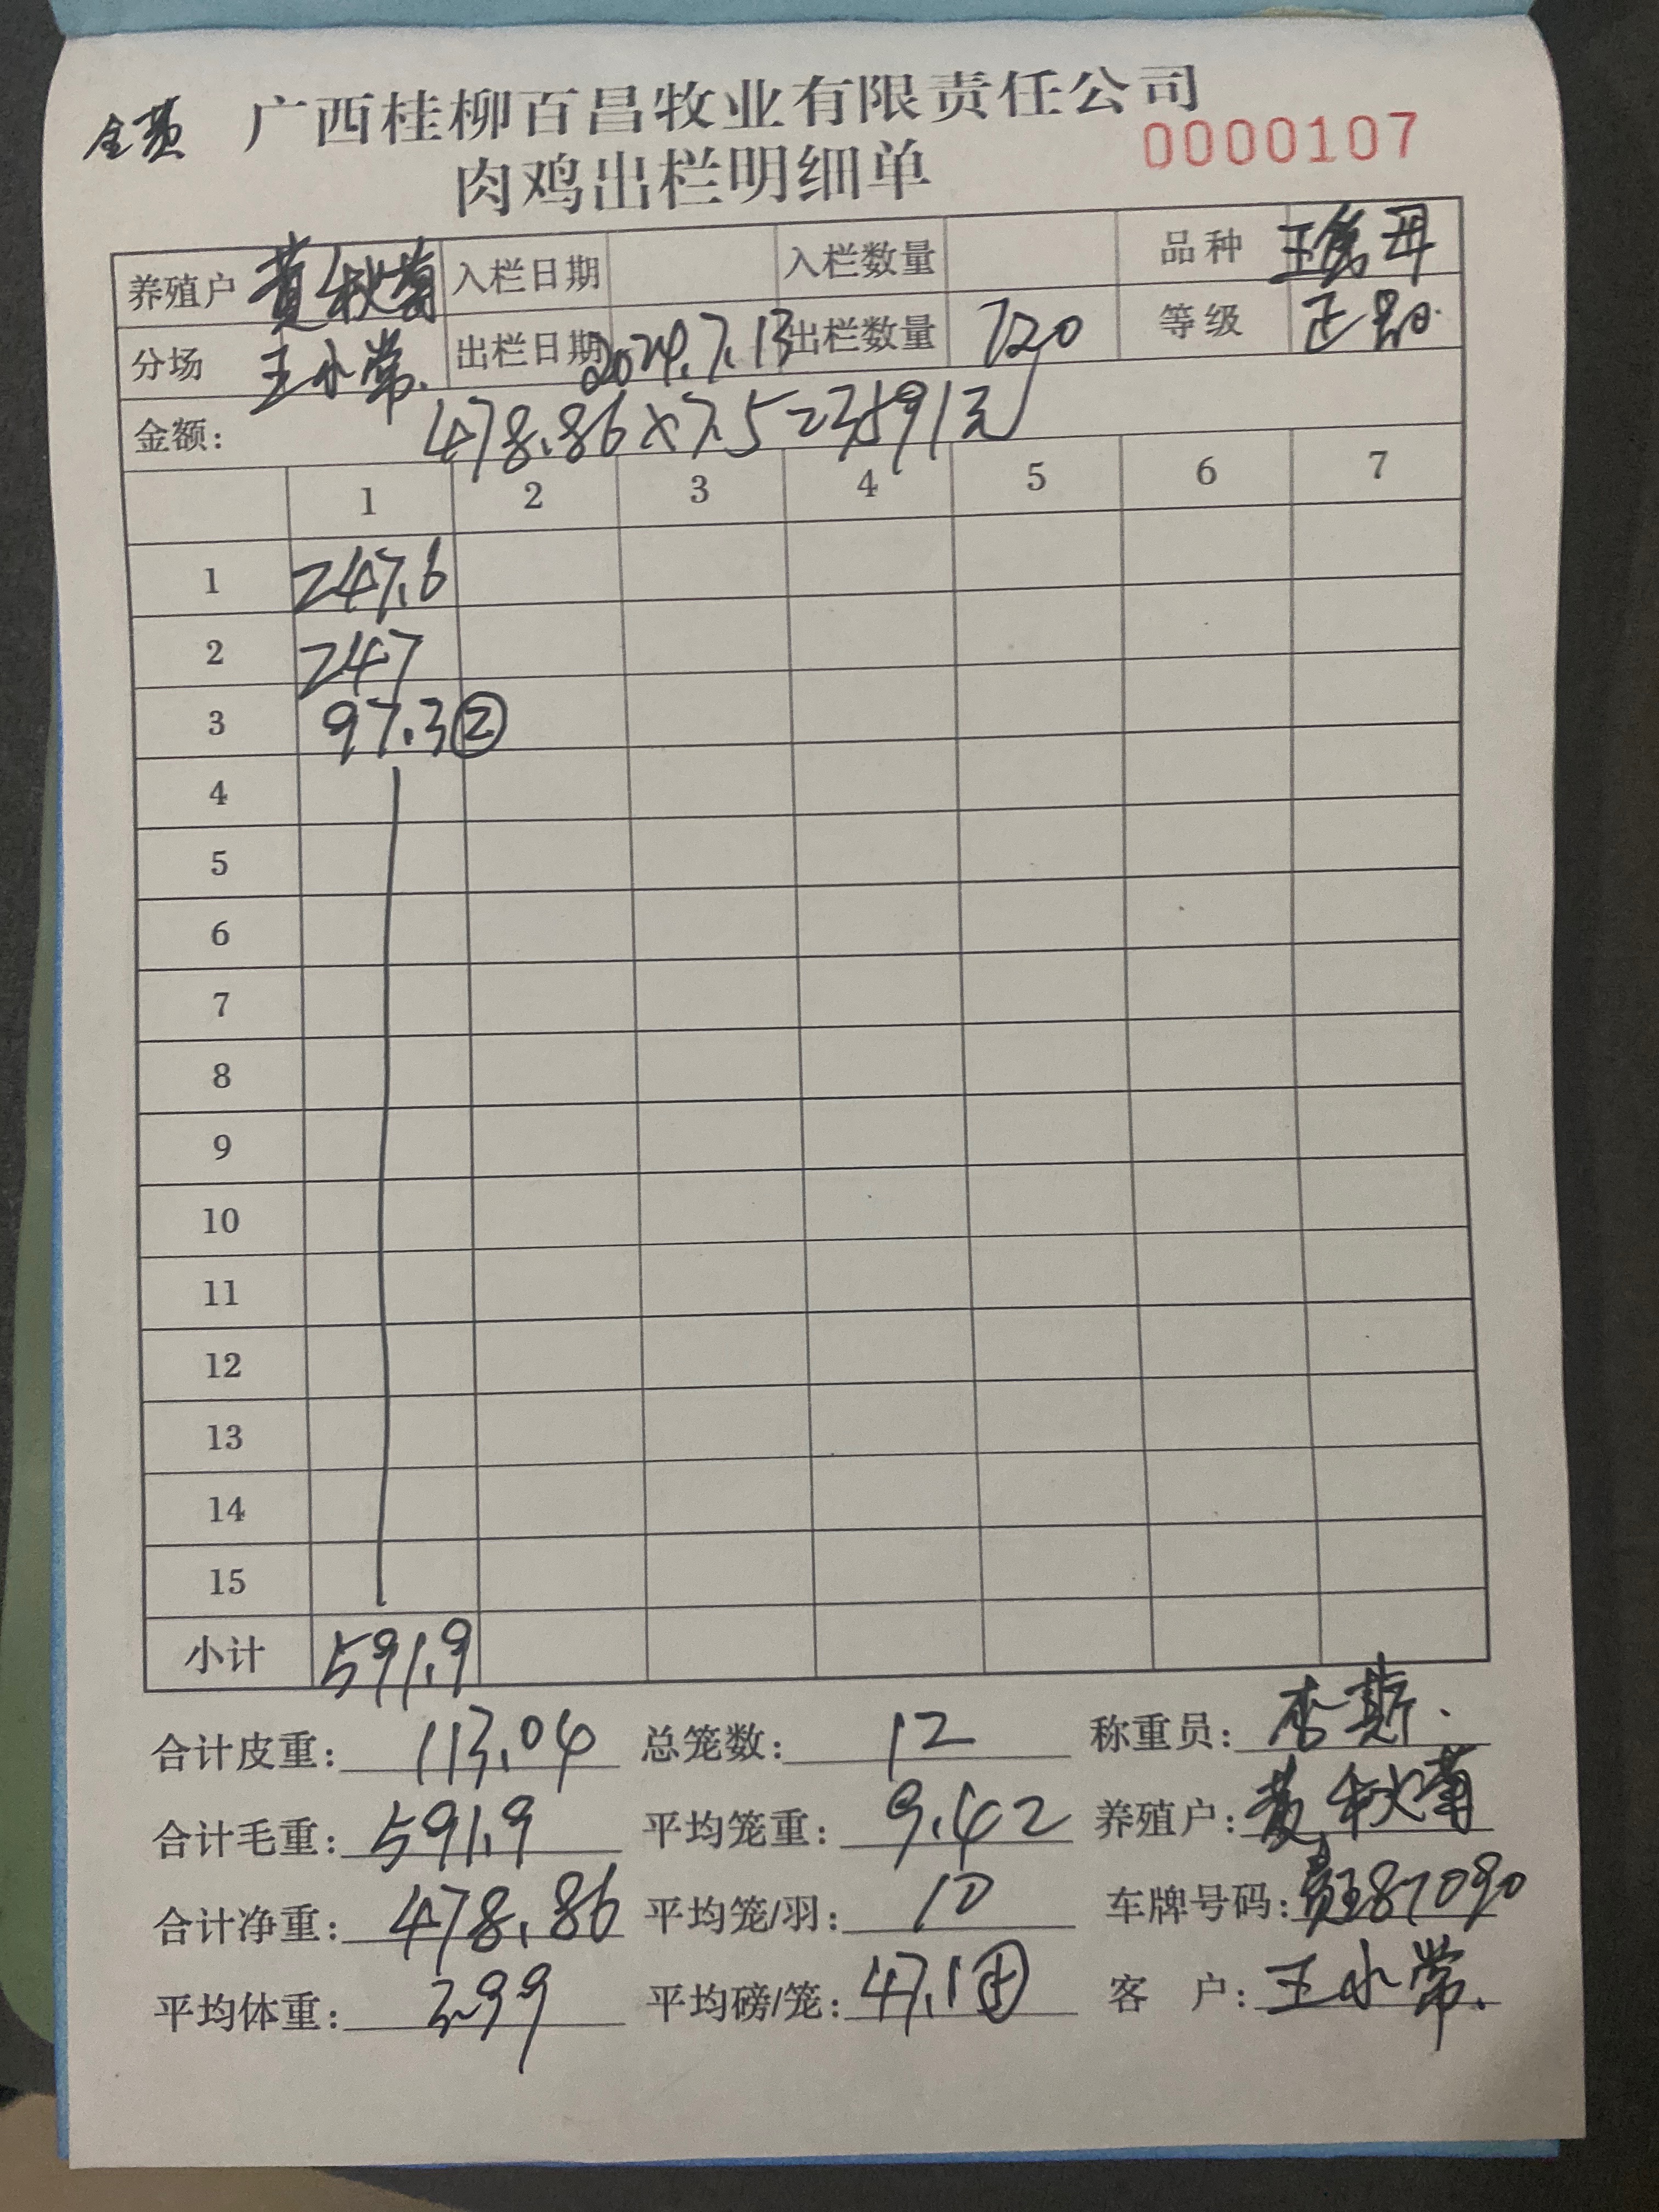 广西桂柳百昌牧业有限责任公司
肉鸡出栏明细单
0000107
养殖户 黄秋菊 入栏日期 入栏数量 品种
分场 王小常. 出栏日期 2024.7.13 出栏数量 120 等级 正品
金额: 478.86×7.5=3591元
1 2 3 4 5 6 7
1 247.6
2 247
3 97.3②
4
5
6
7
8
9
10
11
12
13
14
15
小计 591.9
合计皮重: 113.04 总笼数: 12 称重员: 李斯.
合计毛重: 591.9 平均笼重: 9.42 养殖户: 黄秋菊
合计净重: 478.86 平均笼/羽: 10 车牌号码: 87090
平均体重: 3.99 平均磅/笼: 47.1 客户: 王小常.